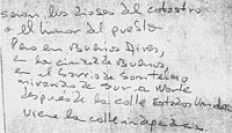 serán, los dioses del catastro
o el humor del pueblo
Pero en Buenos Aires,
en la ciudad de Buenos,
en el barrio de Santelmo
mirando de sur a norte
después de la calle Estados Unidos
viene la calle independencia